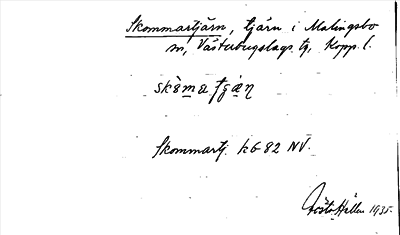 Skommartjärn, tjärn i Malingsbo
sn, Västerbergslags tg, Kopp. l.
Skommartj. kG 82 NV.
Gösta Hallén 1935.